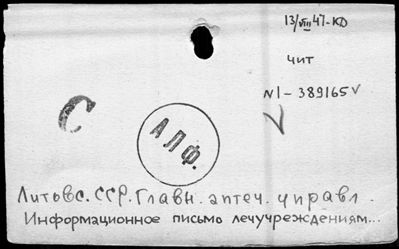 13/VIII 47-КД
чит
N1-389165
С
АЛФ.
Литовс. ССР. Главн. аптеч. управл.
Информационное письмо лечучреждениям...